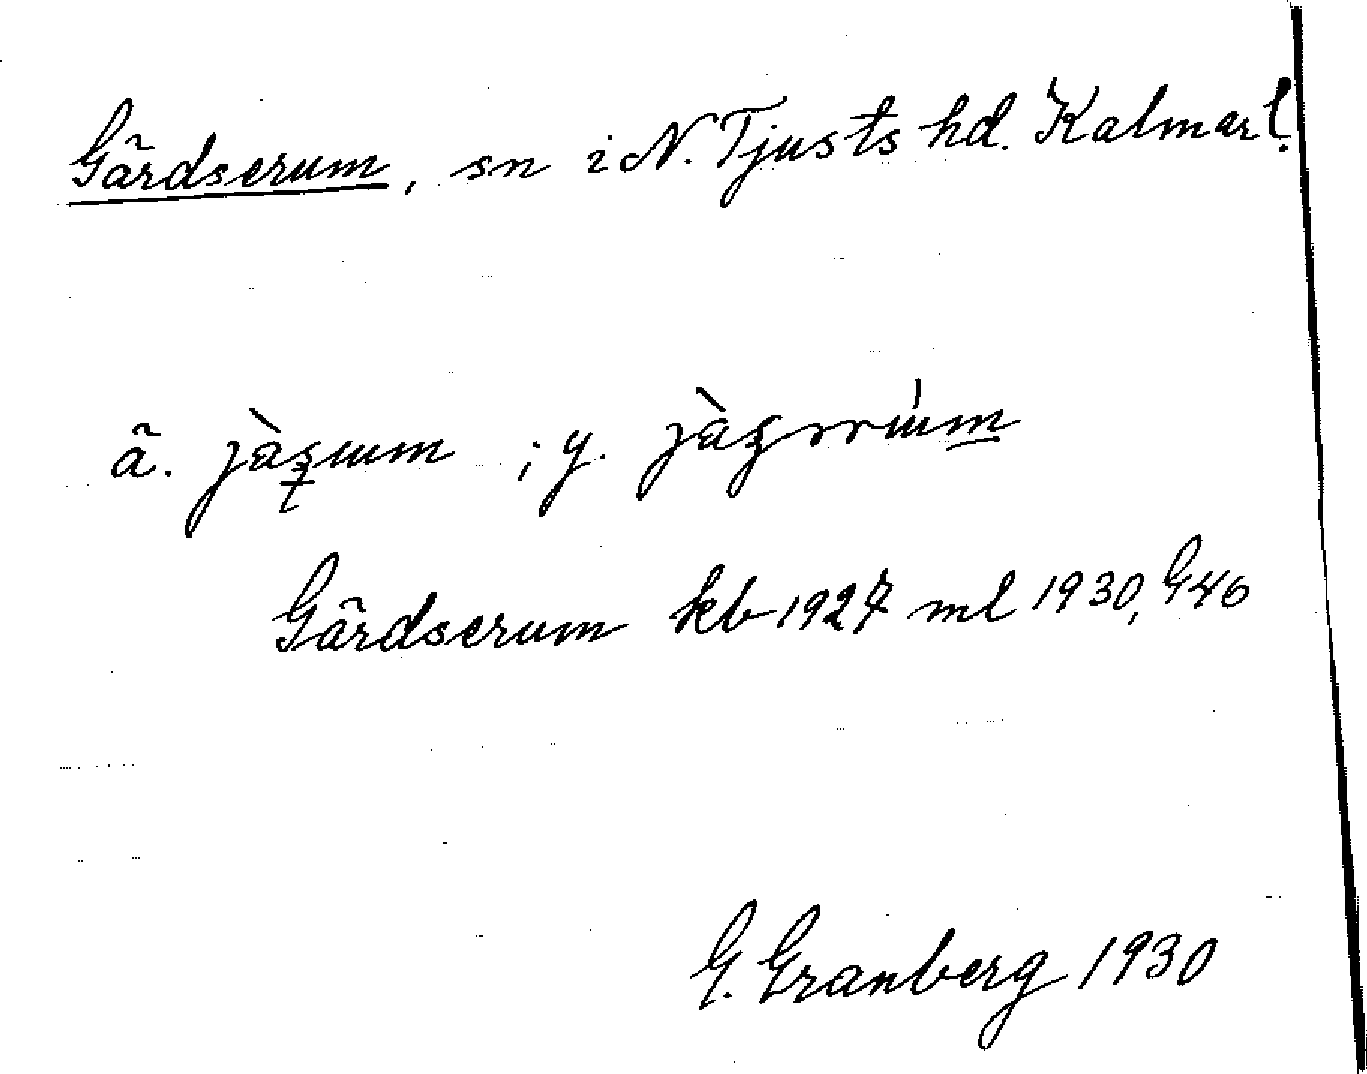 Gärdserum, sn i N. Tjusts hd. Kalmar l.
ä. ; y.
Gärdserum kb 1927 ml 1930, G46
G. Granberg 1930